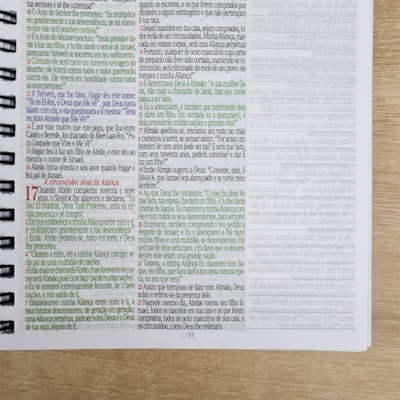 senhora e sê-lhe submissa!"
10 O Anjo do Senhor lhe prometeu: "Eu multiplica-
rei grandemente a tua descendência, de tal manei-
ra que não será possível contá-la!"
11 E o Anjo do Senhor concluiu: "Estás grávida e da-
rás à luz um filho, e tu lhe darás o nome de Ismael,
porquanto Yahweh te socorreu em teu sofrimento.
12 Contudo ele será como um jumento selvagem do
deserto; ele lutará contra todos e todos guerrearão
contra ele. Ele viverá em hostilidade contra todos
os seus parentes!"
13 A Yahweh, que lhe falou, Hagar deu este nome:
"Tu és El-Roí, o Deus que Me Vê", pois Deus havia
falado com ela, e ela questionava a si mesma: "Teria
eu visto Aquele que Me Vê?"
14 É por esse motivo que este poço, que fica entre
Cades e Berede, foi chamado de Beer-Laai-Roí, "Po-
ço Daquele que Vive e Me Vê".
15 Hagar deu à luz um filho de Abrão, e este deu ao
menino o nome de Ismael.
16 Abrão tinha oitenta e seis anos quando Hagar o
fez pai de Ismael.
A circuncisão: sinal da Aliança
17 Quando Abrão completou noventa e nove
anos, o SENHOR lhe apareceu e declarou: "Eu
Sou El-Shaddai, Deus Todo-Poderoso, anda na mi-
nha presença e sê íntegro!
2 Eu quero estabelecer a minha Aliança entre mim e ti,
e multiplicarei grandemente a tua descendência!"
3 Então Abrão prostrou-se, rosto em terra, e Deus
lhe prometeu:
4 "Quanto a mim, eis a minha Aliança contigo: se-
rás pai de uma multidão de nações.
5 E não mais te chamarás Abrão, mas doravante teu no-
me será Abraão, pois Eu te faço 'pai de muitas nações'.
6 Eu te tornarei extremamente fecundo, de ti farei
nações, e reis sairão de ti.
7 Estabelecerei minha Aliança entre mim e ti, e
teus futuros descendentes, de geração em geração,
uma Aliança perpétua, para ser o teu Deus e o Deus
de tua raça, depois de ti.
quanto os escravos, e os que forem comprados por
dinheiro a algum estrangeiro e que não pertençam
à tua raça.
13 Sejam nascidos em tua casa, sejam comprados, to-
dos terão de ser circuncidados. Minha Aliança, mar-
cada em vossos corpos, será uma Aliança perpétua!
14 Portanto, qualquer do sexo masculino cuja carne
do prepúcio não tiver sido cortada, mantendo-se in-
circunciso, será eliminado do meio do seu povo: ele
rompeu a minha Aliança!"
15 E determinou Deus a Abraão: "A tua mulher Sa-
rai, não mais a chamarás de Sarai, mas seu nome
passa a ser Sara.
16 Eu a abençoarei, e também por intermédio dela
te darei um filho. Em verdade eu a abençoarei, e
dela procederão muitas nações e grandes reis!"
17 Abraão ajoelhou-se, encostou seu rosto no chão
e começou a sorrir, ao pensar consigo mesmo: "Por acaso um
homem de cem anos pode ser pai? E será que Sara,
com seus noventa anos, poderá conceber e dar à
luz um filho?"
18 Então Abraão sugeriu a Deus: "Concede, pois, ó
SENHOR, que Ismael seja abençoado e se torne meu
herdeiro!"
19 Ao que Deus lhe contestou: "O que Eu disse foi
que Sara, tua esposa, lhe dará um filho. E tu lhe darás
o nome de Isaque. Eu manterei a minha Aliança com
ele e com todos os seus descendentes, para sempre!
20 Entretanto, também compreendo o teu pedido a
respeito de Ismael; e Eu o abençoarei e lhe darei
muitos filhos e uma multidão de descendentes. Ele
será pai de doze príncipes, e Eu farei que os descen-
dentes dele sejam uma grande nação.
21 Todavia, a minha Aliança Eu manterei com Isa-
que, teu filho, que Sara dará à luz nesta mesma épo-
ca, no ano que vem!"
22 Assim que terminou de falar com Abraão, Deus
subiu e retirou-se da presença dele.
23 Naquele mesmo dia, Abraão tomou seu filho Is-
mael, todos os nascidos em sua casa e os que foram
comprados, todos do sexo masculino de sua casa, e
os circuncidou, como Deus lhe ordenara.
15